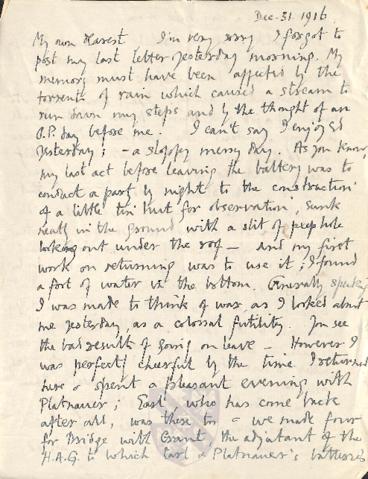 Dec. 31. 1916
My own dearest I'm very sorry I forgot to
post my last letter yesterday morning. My
memory must have been affected by the
torrents of rain which caused a stream to
run down my steps and by the thought of an
O.P. day before me. I can't say I enjoyed
yesterday; - a sloppy messy day. As you know,
my last act before leaving the battery was to
conduct a party by night to the construction
of a little tin hut for observation, sunk
really in the ground with a slit of peep hole
looking out under the roof - and my first
work on returning was to use it; I found
a foot of water in the bottom. Generally speaking
I was made to think of war as I looked about
me yesterday, as a colossal futility. You see
the bad result of going on leave - However I
was perfectly cheerful by the time I returned
here & spent a pleasant evening with
Platnauer; East who has come back
after all, was there too - & we made four
for Bridge with Grant, the adjutant of the
H.A.G. to which Earl & Platnauer's batteries